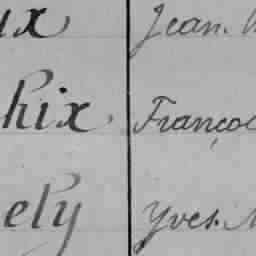 ux Jean.
hix. Françoi
ely Yves.